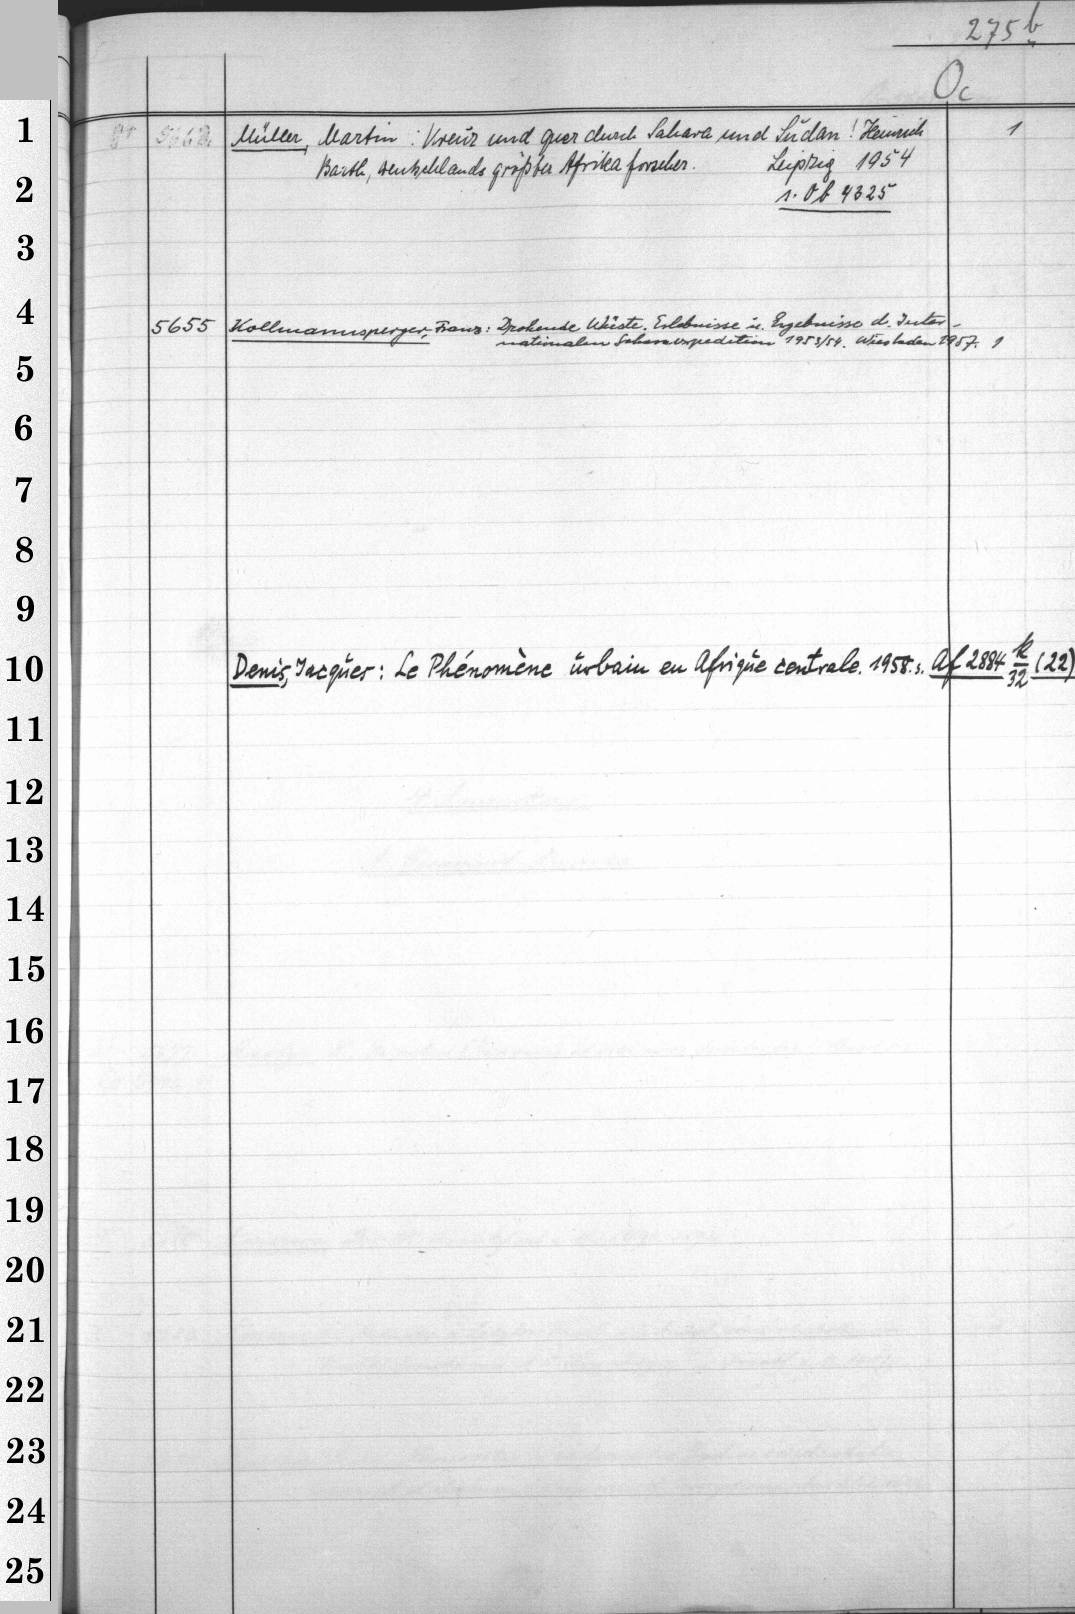 275 b
Oc
1
Müller, Martin : Kreuz und quer durch Sahara und Sudan! Heinrich 1
Barth, Deutschlands größter Afrikaforscher. Leipzig 1954
2
s. Ob 4325
3
4
5655 Kollmannsperger, Franz: Drohende Wüste. Erlebnisse u. Ergebnisse d. Inter-
nationalen Saharaexpedition 1953/54. Wiesbaden 1957. 1
5
6
7
8
9
10
Denis, Jacques: Le Phénomène urbain en Afrique centrale. 1958. s. Af 2884 k/32 (22)
11
12
13
14
15
16
17
18
19
20
21
22
23
24
25